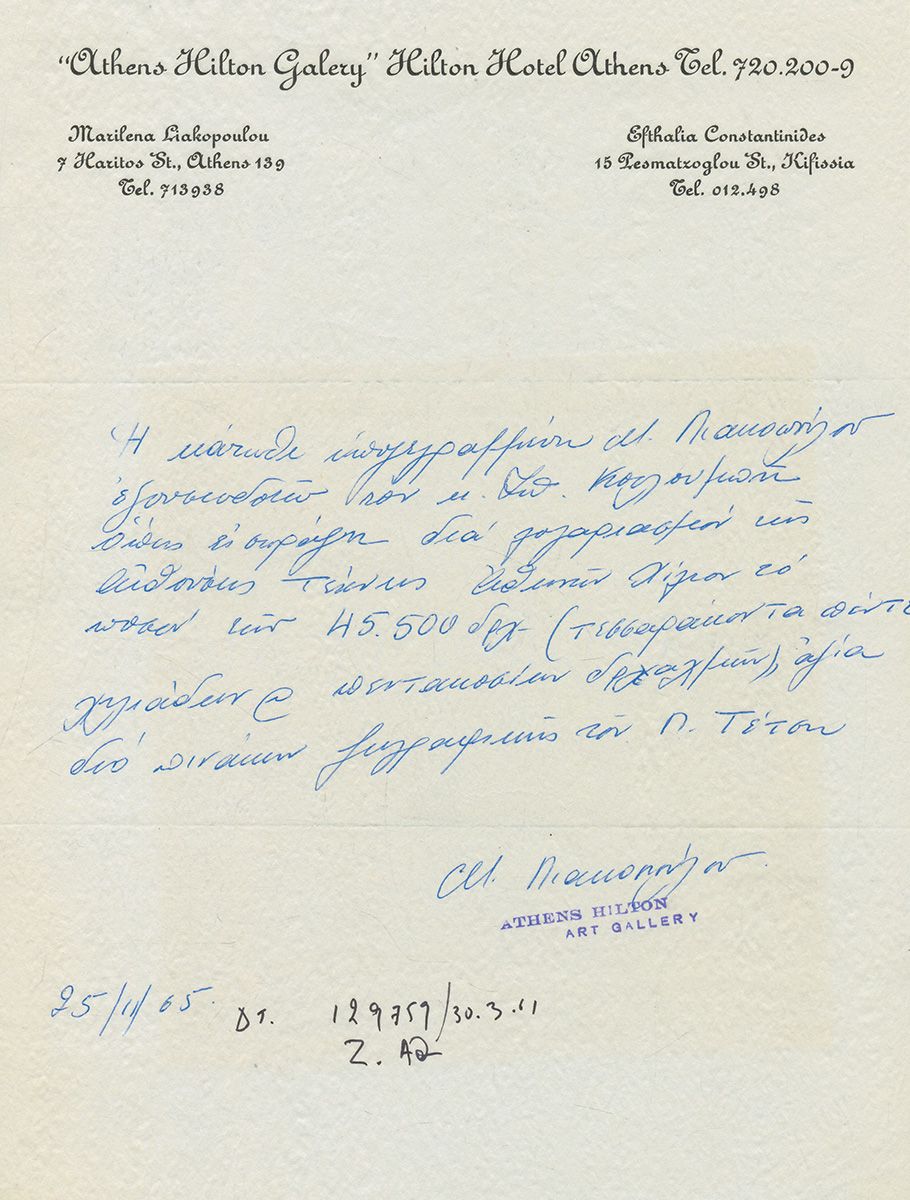 "Athens Hilton Galery" Hilton Hotel Athens Tel. 720.200-9
Marilena Liakopoulou
7 Haritos St., Athens 139
Tel. 713938
Efthalia Constantinides
15 Pesmatzoglou St., Kifissia
Tel. 012.498
Ἡ κάτωθι ὑπογεγραμμένη Μ. Λιακοπούλου
ἐξουσιοδοτῶ τον κ. Σπ. Κουλουμπῆ
ὅπως εἰσπράξῃ διά λογαριασμόν τῆς
Αἰθούσης Τέχνης Ἀθηνῶν Χίλτον τό
ποσόν τῶν 45.500 δρχ. (τεσσαράκοντα πέντε
χιλιάδων πεντακοσίων δραχμῶν), ἀξία
δύο πινάκων ζωγραφικῆς τοῦ Π. Τέτση
Μ. Λιακοπούλου.
ATHENS HILTON
ART GALLERY
25/11/65.
ΔΤ. 129759/30.3.61
Ζ. ΑΘ